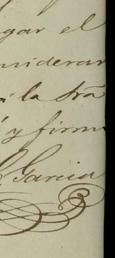 gar el
nsiderar
á la Srã
y firm
Garcia